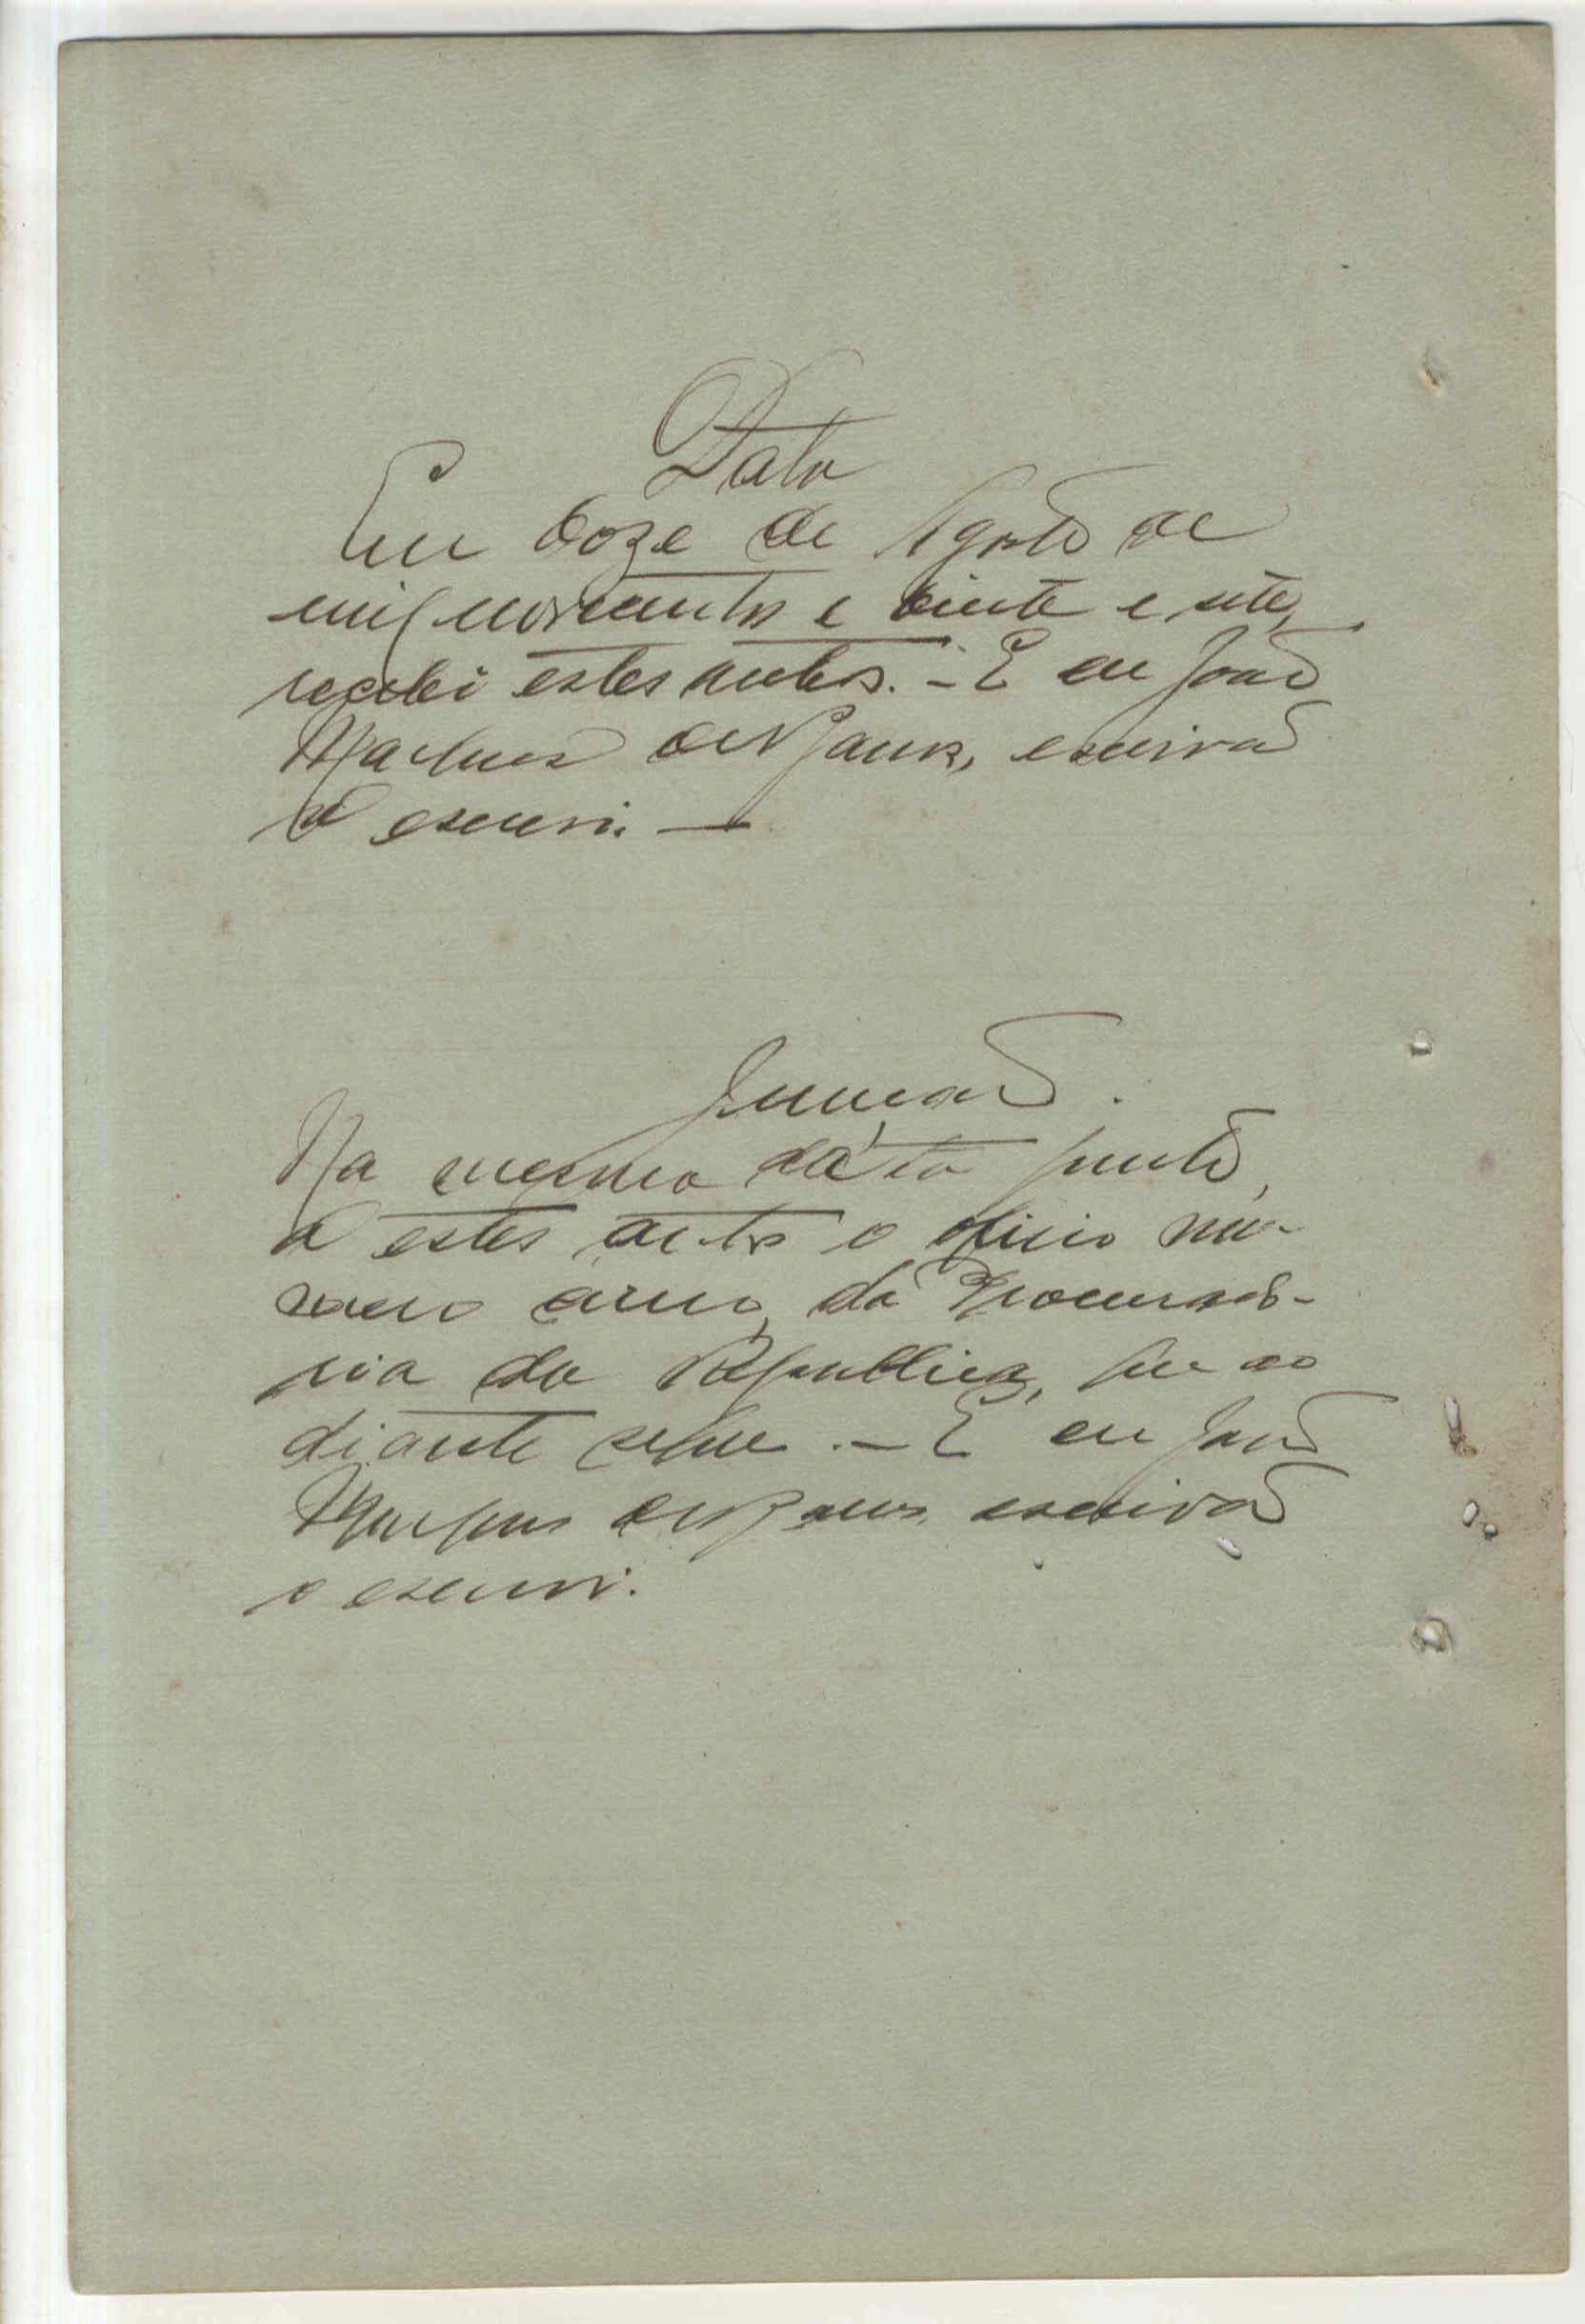 Data
Em doze de Agosto de
mil novecentos e vinte e sete,
recebi estes autos. - E eu João
Marques de, escrivão
o escrevi. —
Juncção.
Na mesma dáta junto,
a estes autos o oficio nu-
mero, da Procurado-
ria da Republica, que ao
diante segue. - E eu João
Marques de, escrivão
o escrevi.